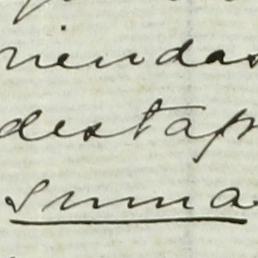 riendas
destap
suma